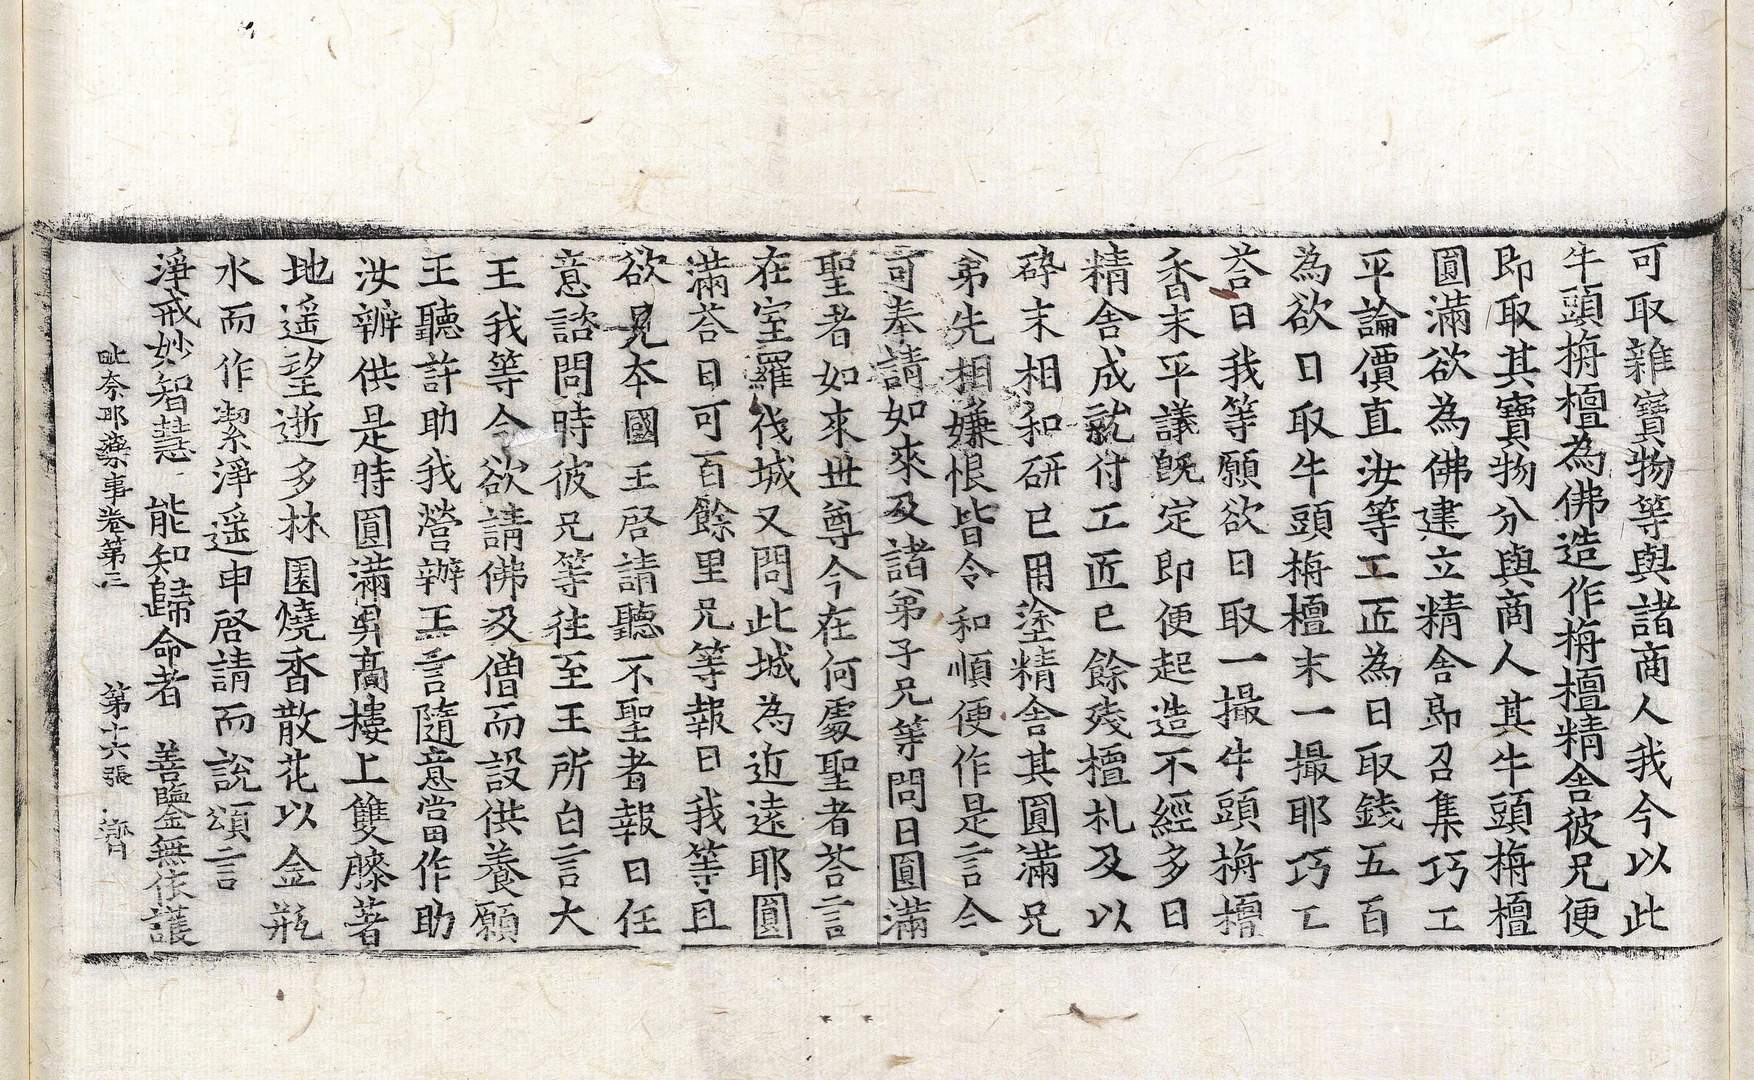 可取雜寶物等與諸商人我今以此
牛頭栴檀為佛造作栴檀精舍彼兄便
即取其寶物分與商人其牛頭栴檀
圓滿欲為佛建立精舍即召集巧工
平論價直汝等工匠為日取錢五百
為欲日取牛頭栴檀末一撮耶巧工
荅曰我等願欲日取一撮牛頭栴檀
香末平議旣定即便起造不經多日
精舍成就付工匠已餘殘檀札及以
碎末相和研已用塗精舍其圓滿兄
弟先相嫌恨皆令和順便作是言今
可奉請如來及諸弟子兄等問曰圓滿
聖者如來世尊今在何處聖者荅言
在室羅伐城又問此城為近遠耶圓
滿荅曰可百餘里兄等報曰我等且
欲見本國王啓請聽不聖者報曰任
意諮問時彼兄等往至王所白言大
王我等今欲請佛及僧而設供養願
王聽許助我營辦王言隨意當作助
汝辦供是時圓滿昇高樓上雙膝著
地遥望逝多林園燒香散花以金瓶
水而作潔淨遥申啓請而說頌言
淨戒妙智慧　能知歸命者　善鹽無依護
毗奈耶藥事卷第三　第十六張　濟